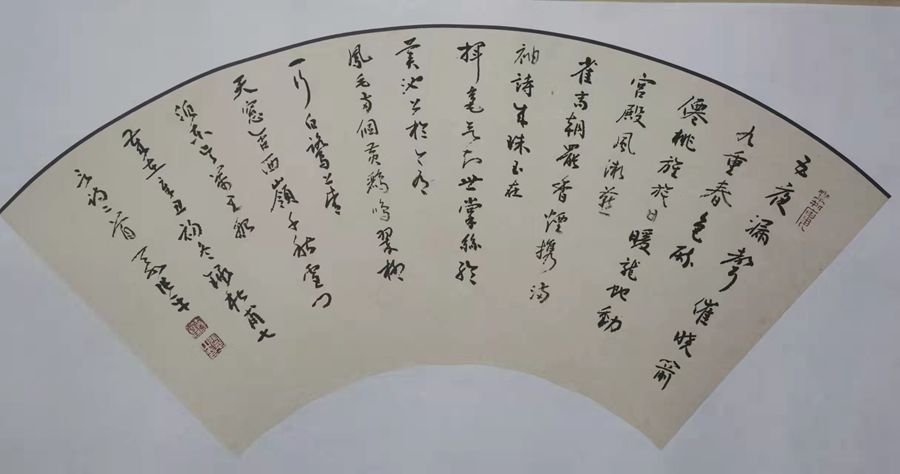 五夜漏聲催曉箭
九重春色醉
僊桃旌旂日暖龍蛇動
宮殿風微燕
雀高朝罷香煙攜滿
袖詩成珠玉在
揮毫欲知世掌絲綸
美池上於今有
鳳毛兩個黃鸝鳴翠柳
一行白鷺上青
天窗含西嶺千秋雪門
泊東吳萬里船
歲在辛丑初冬錄杜甫七
言詩二首